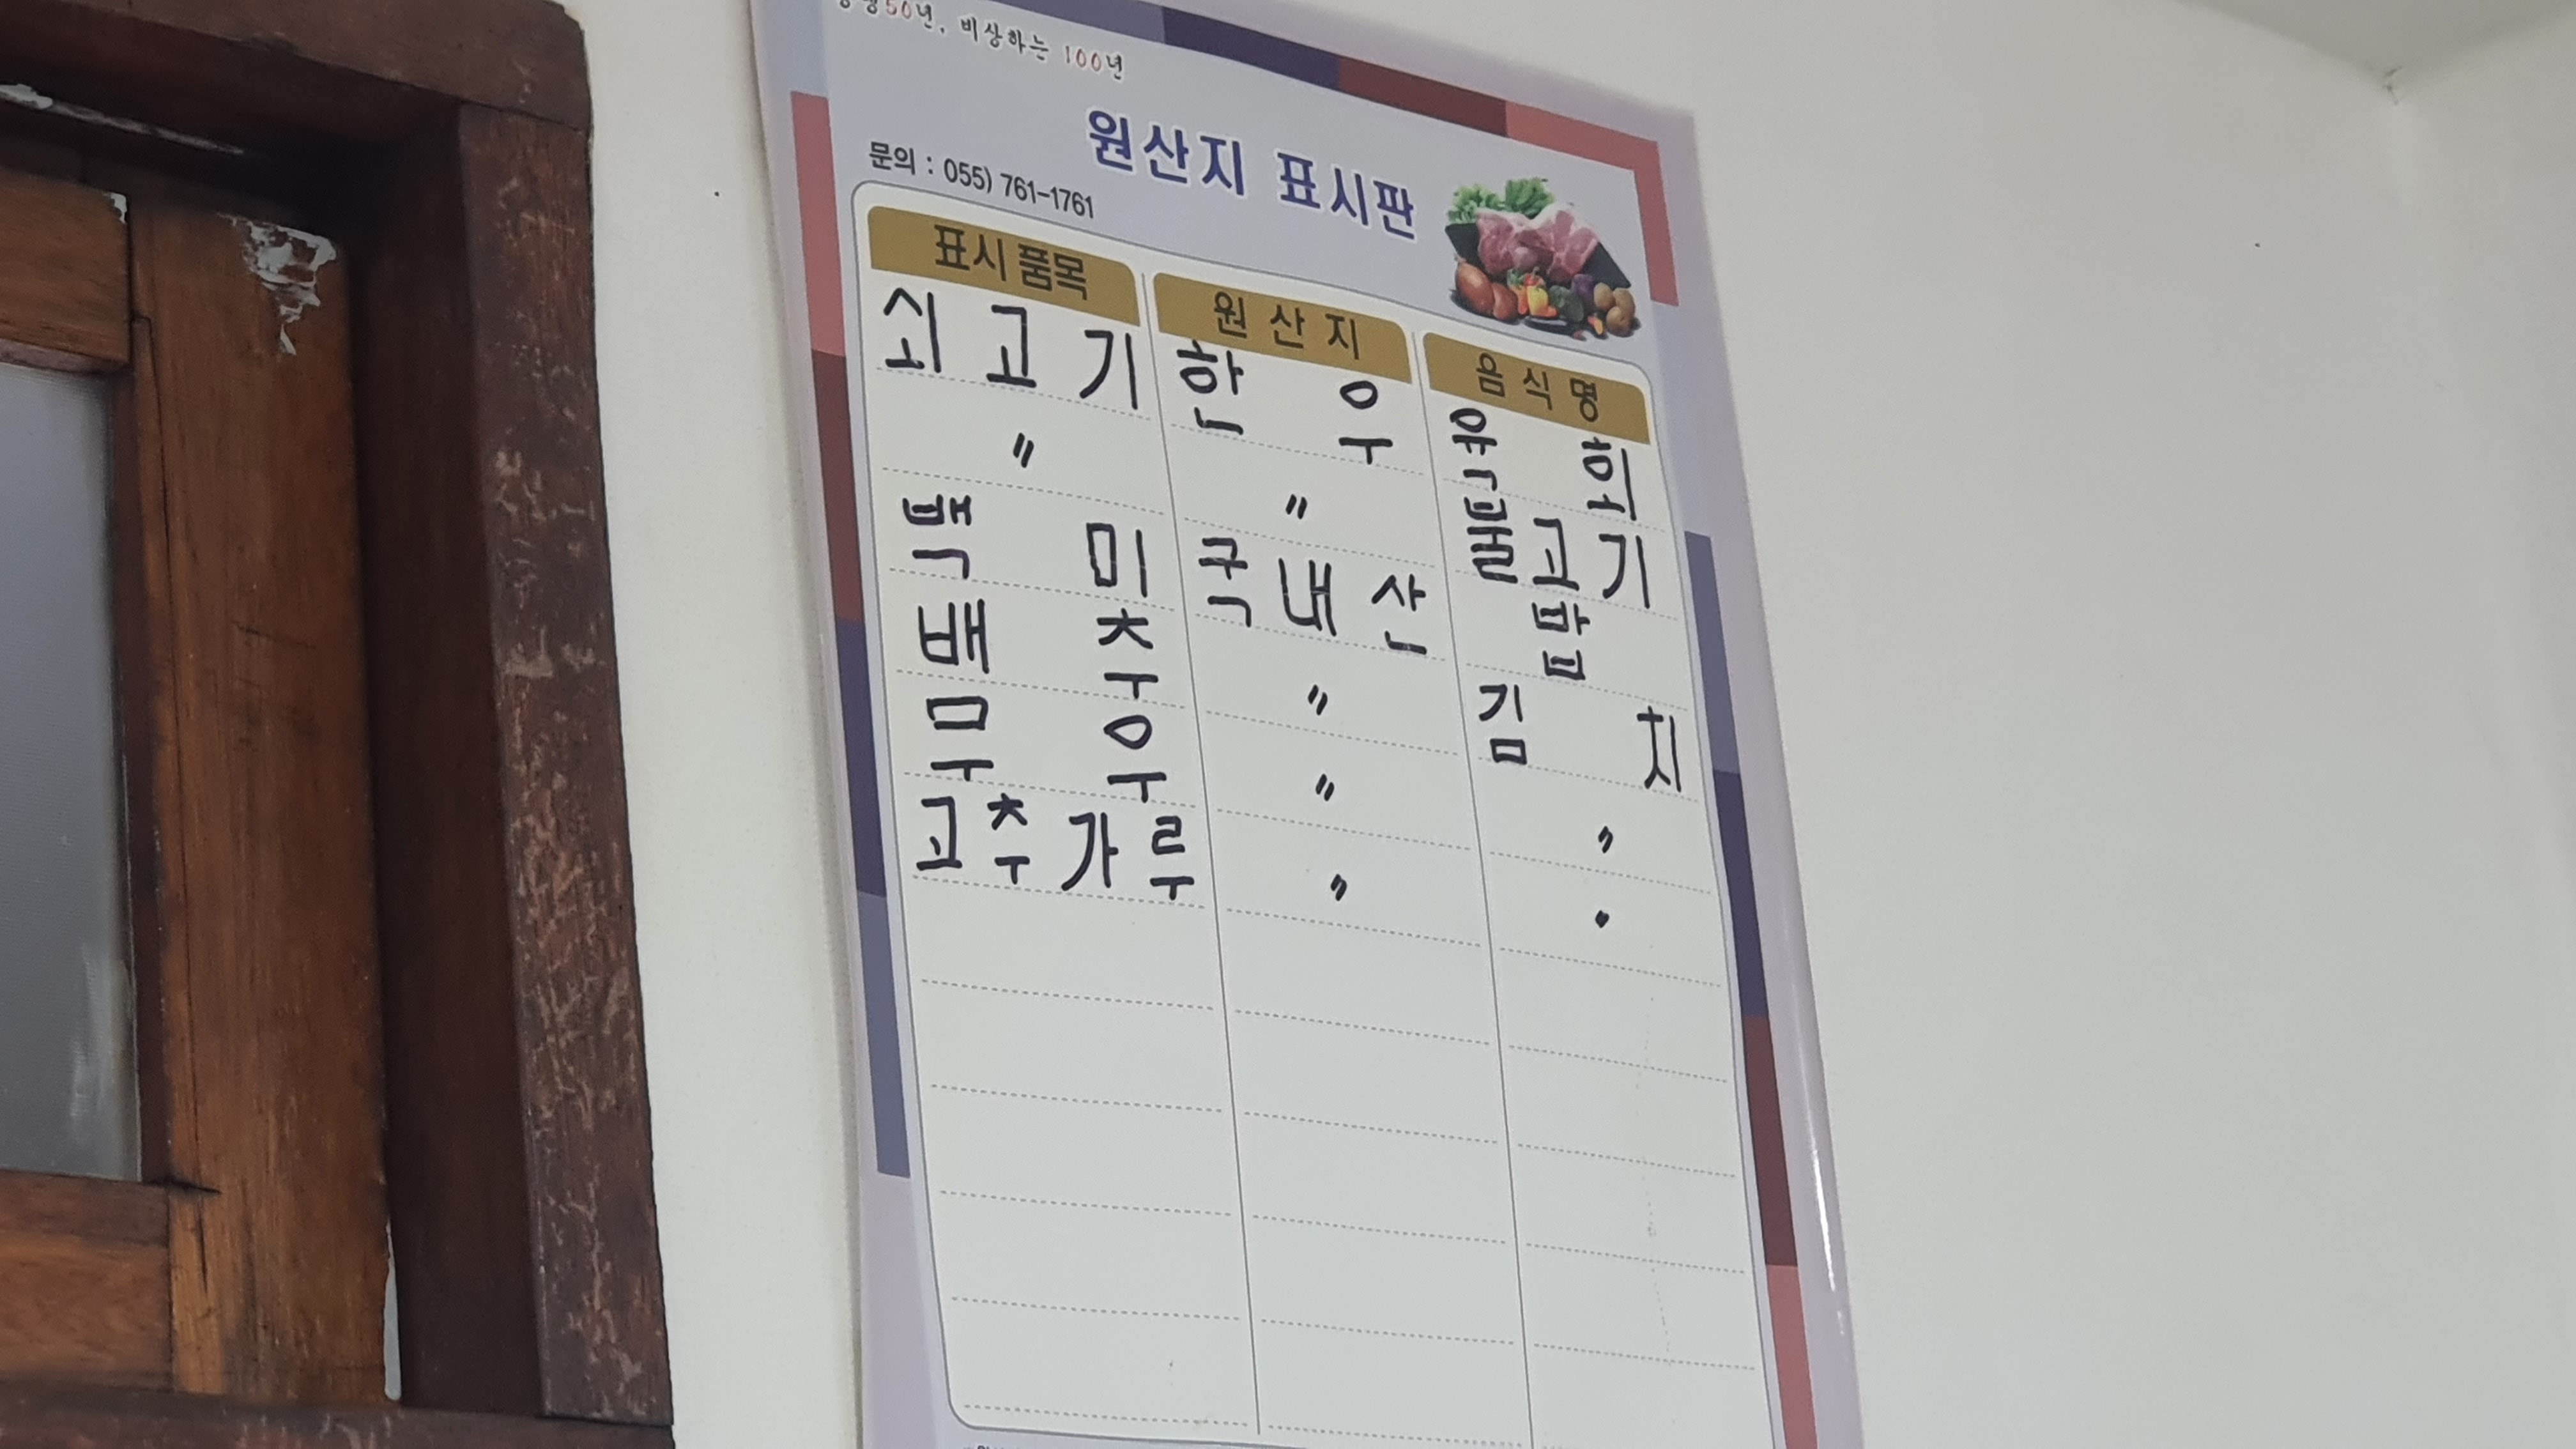 50년, 비상하는 100년
원산지 표시판
문의 : 055) 761-1761
표시품목 원산지 음식명
쇠고기 한우 육회
〃 〃 불고기
백미 국내산 밥
배추 〃 김치
무우 〃 〃
고추가루 〃 〃